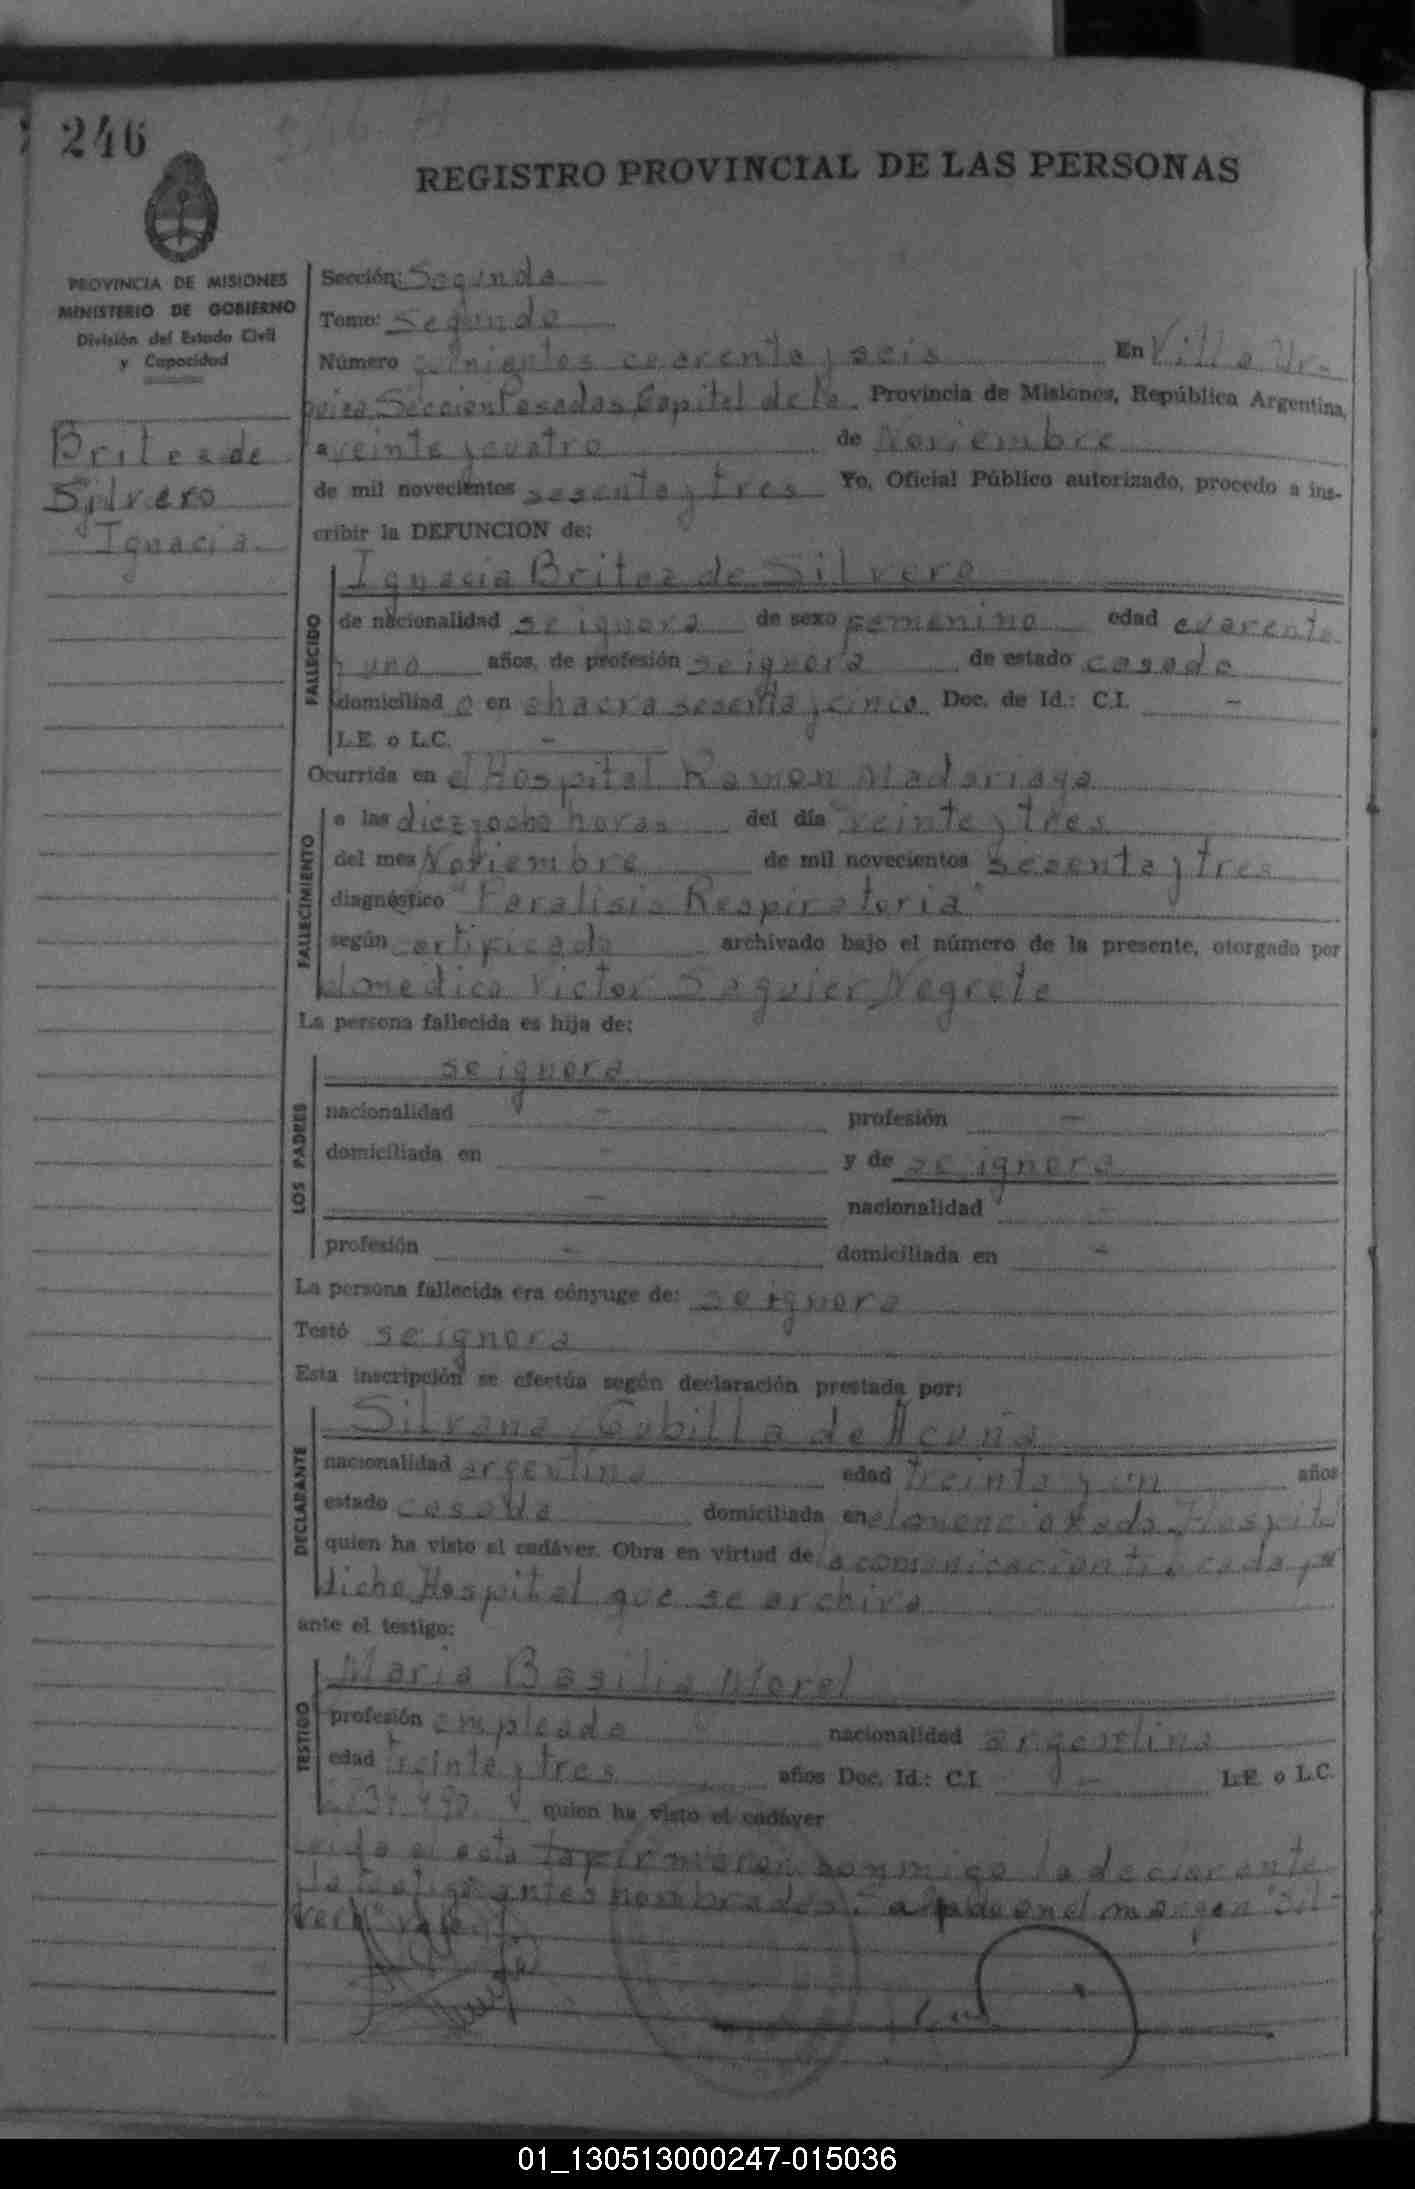 246
546 A
REGISTRO PROVINCIAL DE LAS PERSONAS
PROVINCIA DE MISIONES
MINISTERIO DE GOBIERNO
División del Estado Civil
y Capacidad
Britez de
Silvero
Ignacia.
Sección: Segunda
Tomo: Segundo
Número quinientos cuarenta y seis En Villa Ur-
quiza Seccion Posadas Capital de la Provincia de Misiones, República Argentina,
a veinte y cuatro de Noviembre
de mil novecientos sesenta y tres Yo, Oficial Público autorizado, procedo a ins-
cribir la DEFUNCION de:
Ignacia Britez de Silvero
FALLECIDO
de nacionalidad se ignora de sexo femenino edad cuarenta
y uno años, de profesión se ignora de estado casada
domiciliad a en chacra sesenta y cinco Doc. de Id.: C.I. -
L.E. o L.C. -
Ocurrida en el Hospital Ramon Madariaga
FALLECIMIENTO
a las diez y ocho horas del día veinte y tres
del mes Noviembre de mil novecientos sesenta y tres
diagnóstico "Paralisis Respiratoria"
según certificado archivado bajo el número de la presente, otorgado por
el medico Victor Saguier Negrete
La persona fallecida es hija de:
LOS PADRES
se ignora
nacionalidad - profesión -
domiciliada en - y de se ignora
- nacionalidad -
profesión - domiciliada en -
La persona fallecida era cónyuge de: se ignora
Testó se ignora
Esta inscripción se efectúa según declaración prestada por:
DECLARANTE
Silvana Cabilla de Acuña
nacionalidad argentina edad treinta y un años
estado casada domiciliada en el mencionado Hospital
quien ha visto el cadáver. Obra en virtud de la comunicacion
dicho Hospital que se archiva
ante el testigo:
TESTIGO
Maria Basilia Morel
profesión empleada nacionalidad argentina
edad treinta y tres años Doc. Id.: C.I. - L.E. o L.C.
quien ha visto el cadáver
Leida el acta la firmaron conmigo la declarante
la testigo antes nombrados: en el margen "Sil-
vero" vale
01_130513000247-015036